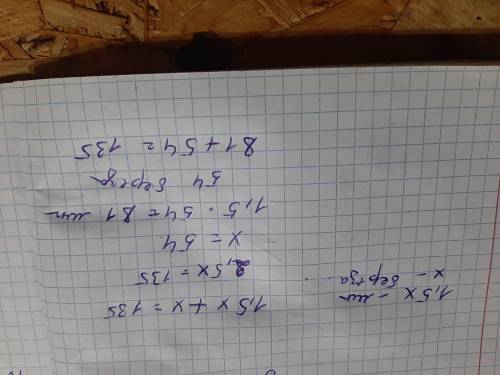 1,5x - лип
x - береза
1,5x + x = 135
2,5x = 135
x = 54
1,5 · 54 = 81 лип
54 береза
81 + 54 = 135